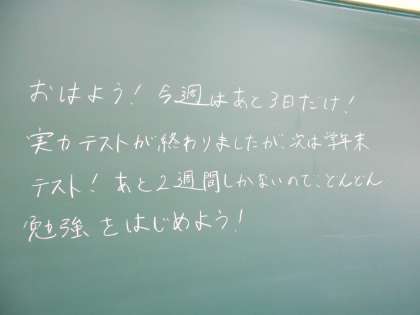 おはよう！今週はあと3日だけ！
実力テストが終わりましたが、次は学年末
テスト！あと2週間しかないので、どんどん
勉強をはじめよう！